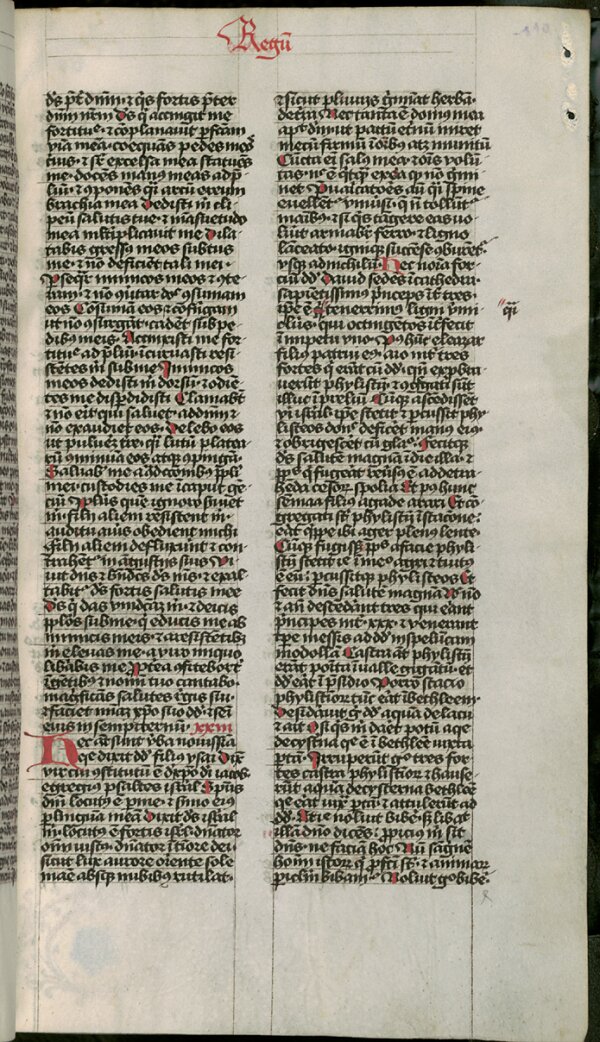 Regū
ds p̄t dnm̄ · ⁊ q̄s fortis p̄ter
dnm nr̄m Ds q̇ accingit me
fortituē · ⁊ cōplanauit ꝑfcām
viā meā · coequās pedes meos
ceruis · ⁊ sr̄ excelsa mea statuēs
me · docēs manꝰ meas ad p̄
liū · ⁊ ꝯponēs q̄i arcū ereum
brachia mea Dedisti m̄ cli
peū salutis tue · ⁊ māsuetudo
mea ml̄tiplicauit me Dila
tabis gressꝰ meos subtus
me · ⁊ nō deficiēt tali mei ·
Perseqr̄ inimicos meos ⁊ ꝯte
ram · ⁊ nō ꝯuertar donec ꝯsumam
eos Cōsumā eos ⁊ cōfrigam
ut nō ꝯsurgāt · cadēt sub pe
dibus meis · Accinxisti me for
tituē ad p̄liū · īcuruasti resi
stētes m̄ sub me Inimicos
meos dedisti m̄ dorsū · ⁊ odiē
tes me disꝑdidisti Clamabūt
⁊ nō erit qui saluet · ad dnm̄ ⁊
nō exaudiet eos · Delebo eos
ut puluerē tr̄e · q̄i lutū platea
rū ꝯminuā eos atqꝫ ꝯpingā ·
Saluabis me a ꝯtradictionibꝫ pp̄li
mei · custodies me ī caput gē
ciū Pp̄lus quē ignoro ẜuiet
m̄ · filii alieni resistent m̄
auditu auris obedient michi
Filii alieni defluxerūt ⁊ con
trahent̄ in angustiis suis Vi
uit dns ⁊ bn̄dcꝰ ds ms̄ · ⁊ exal
tabit̄ ds fortis salutis mee
Ds q̇ das vindictas m̄ · ⁊ deicis
pp̄los sub me · q̇ educis me ab
inimicis meis · ⁊ a resistētibꝫ
m̄ eleuas me · a viro iniquo
liberabis me Propterea ꝯfitebor t̄
ī gētibꝫ ⁊ nomī tuo cantabo ·
magnificans salutes regis sui ·
⁊ faciēt mīaz xp̄o suo dd̄ · ⁊ sēi
eius in sempiternū · xxiii
Hec aūt sunt v̄ba nouissīa
que dixit dd̄ filiꝰ ysai Dix̄
vir cui ꝯstitutū ē de xp̄o dī iacob
egregiꝰ psaltes isrl̄ Sp̄us
dnī locutꝰ ē ꝑ me · ⁊ sīmo eiꝰ
ꝑ linguā meā Dixit ds isrl̄
m̄ · locutꝰ ē fortis isrl̄ · dn̄ator
om̄ iustꝰ · dn̄ator ī timore dei ·
sicut lux aurore oriente sole
mane absqꝫ nubibꝫ rutilat ·
⁊ sicut pluuiis ḡminat herba
de tr̄a Nec tanta ē domꝰ mea
apud dm̄ · ut pactū eternū iniret
mecū · firmū ī oībꝫ atqꝫ munitū
Cuncta ei̅ salus mea · ⁊ oīs volū
tas · nec ē q̇cqꝫ ex ea qd̄ nō ḡmi
net Preuaricatores aūt q̄i spine
euellent̄ vniuersi · q̄ nō tollunt̄
manibꝫ · ⁊ si q̇s tangere eas vo
luit armabit̄ ferro · ⁊ ligno
lanceato · igniqꝫ succēse ꝯburēt̄
vsqꝫ ad nichilū Hec noīa for
ciū dd̄ Dauid sedēs ī cathedra
sapiētissimꝰ pnceps īt̄ tres ·
ip̄e ē q̄i tenerrimꝰ ligni vermi
clꝰus · qui octingētos īt̄fecit
ī impetu vno Post hūc eleazar
filiꝰ patrui eiꝰ · aio inter tres
fortes q̇ erāt cū dd̄ · qn̄ exprobra
uerūt phylistīm ⁊ ꝯgregati sūt
illuc ī preliū Cūqꝫ ascēdissēt
viri isrl̄ · ip̄e stetit ⁊ ꝑcussit phy
listeos donec deficēt manꝰ eiꝰ
⁊ obrigescēt cū gladio Fecitqꝫ
ds salutē magnā ī die illa · ⁊
pp̄s q̇ fugerat reuersꝰ ē ad detra
hēda cesorū spolia Et post hunc
semaa filiꝰ agade arari Et cō
gregati sūt phylistīm ī stacōne ·
erat q̄ppe ibi ager plenꝰ lente
Cūqꝫ fugisset pp̄s a facie phyli
stīm stetit ip̄e ī medio agri ⁊ tuitꝰ
ē eū · ꝑcussitqꝫ phylisteos Et
fecit dns salutē magnā Nec nō
⁊ añ descēderāt tres qui erāt
principes inter xxx · ⁊ venerant
tp̄e messis ad dd̄ in speluncam
modollā Castra aūt phylistīm
erāt posita ī valle gigātū · ⁊
dd̄ erāt ī p̄sidio Porro stacio
phylistīor tūc erāt ī bethleem
Desiderauit ḡ dd̄ aquā de lacu
⁊ ait O si q̇s m̄ daret potū aq̄e
de cysterna que ē ī bethleē iuxta
portā · Irruperūt ḡ tres for
tes castra phylistīor ⁊ hause
rūt aquā de cysterna bethleē
q̄ erat iuxta portā · ⁊ attulerūt ad
dd̄ At ip̄e noluit bibere · sꝫ libauit
illā dno dicēs Propicius m̄ sit
dns · ne faciā hoc Nū sāguinē
hoīm istorū q̇ ꝓfecti sunt · ⁊ animarū
periclm̄ bibam Noluit ḡ bibere
q̄i